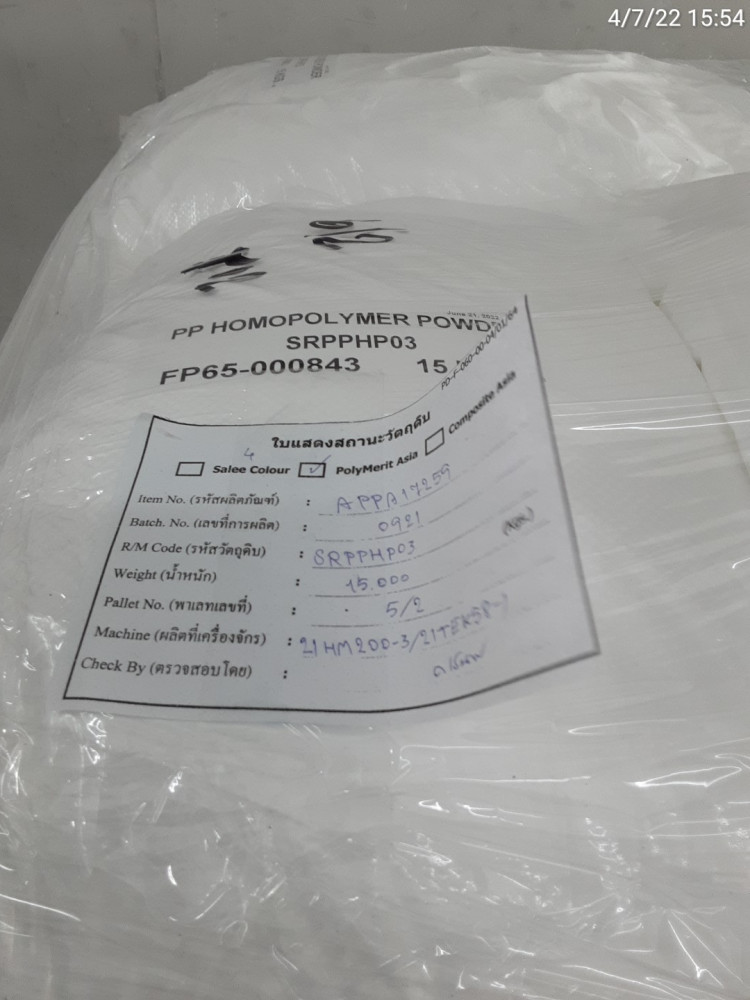 4/7/22 15:54
PP HOMOPOLYMER POWD
SRPPHP03
FP65-000843 15
PD-F-060-00-04/01/64
ใบแสดงสถานะวัตถุดิบ
4
Salee Colour ✓ PolyMerit Asia Composite Asia
Item No. (รหัสผลิตภัณฑ์) : APPA17259
Batch. No. (เลขที่การผลิต) : 0921
R/M Code (รหัสวัตถุดิบ) : SRPPHP03
Weight (น้ำหนัก) : 15.000
Pallet No. (พาเลทเลขที่) : 5/2
Machine (ผลิตที่เครื่องจักร) : 21HM200-3/21TEK58-1
Check By (ตรวจสอบโดย) :